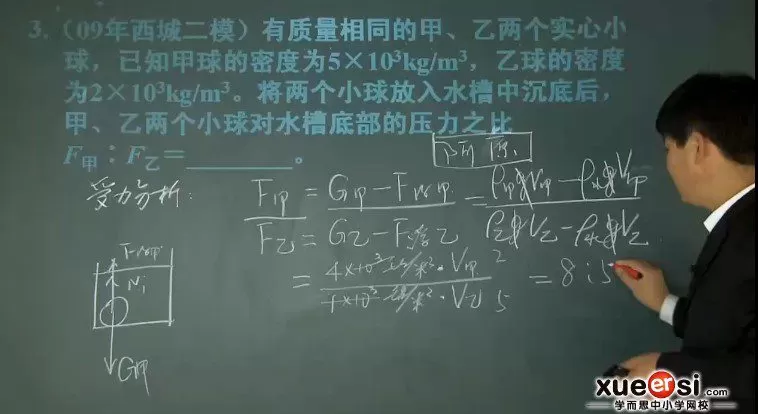 3.（09年西城二模）有质量相同的甲、乙两个实心小
球，已知甲球的密度为5×10³kg/m³，乙球的密度
为2×10³kg/m³。将两个小球放入水槽中沉底后，
甲、乙两个小球对水槽底部的压力之比
F甲：F乙＝________。
受力分析:
F甲 = G甲 - F浮甲 = ρ甲gV甲 - ρ水gV甲
F乙 = G乙 - F浮乙 ρ乙gV乙 - ρ水gV乙
= 4×10³ kg/m³·V甲 2 = 8:5
1×10³ kg/m³·V乙 5
F浮甲
N1
G甲
xueersi.com
学而思中小学网校